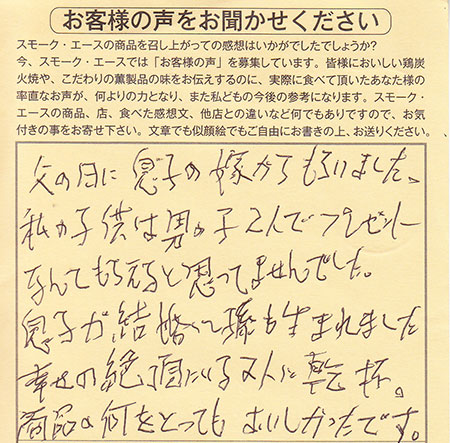 お客様の声をお聞かせください
スモーク・エースの商品を召し上がっての感想はいかがでしたでしょうか?
今、スモーク・エースでは「お客様の声」を募集しています。皆様においしい鶏炭
火焼や、こだわりの薫製品の味をお伝えするのに、実際に食べて頂いたあなた様の
率直なお声が、何よりの力となり、また私どもの今後の参考になります。スモーク・
エースの商品、店、食べた感想文、他店との違いなど何でもありですので、お気
付きの事をお寄せ下さい。文章でも似顔絵でもご自由にお書きの上、お送りください。
父の日に息子の嫁からもらいました。
私の子供は男の子2人でプレゼント
なんてもらえると思ってませんでした。
息子が結婚して孫も生まれました
幸せの絶頂にいる2人に乾杯。
商品は何をとってもおいしかったです。